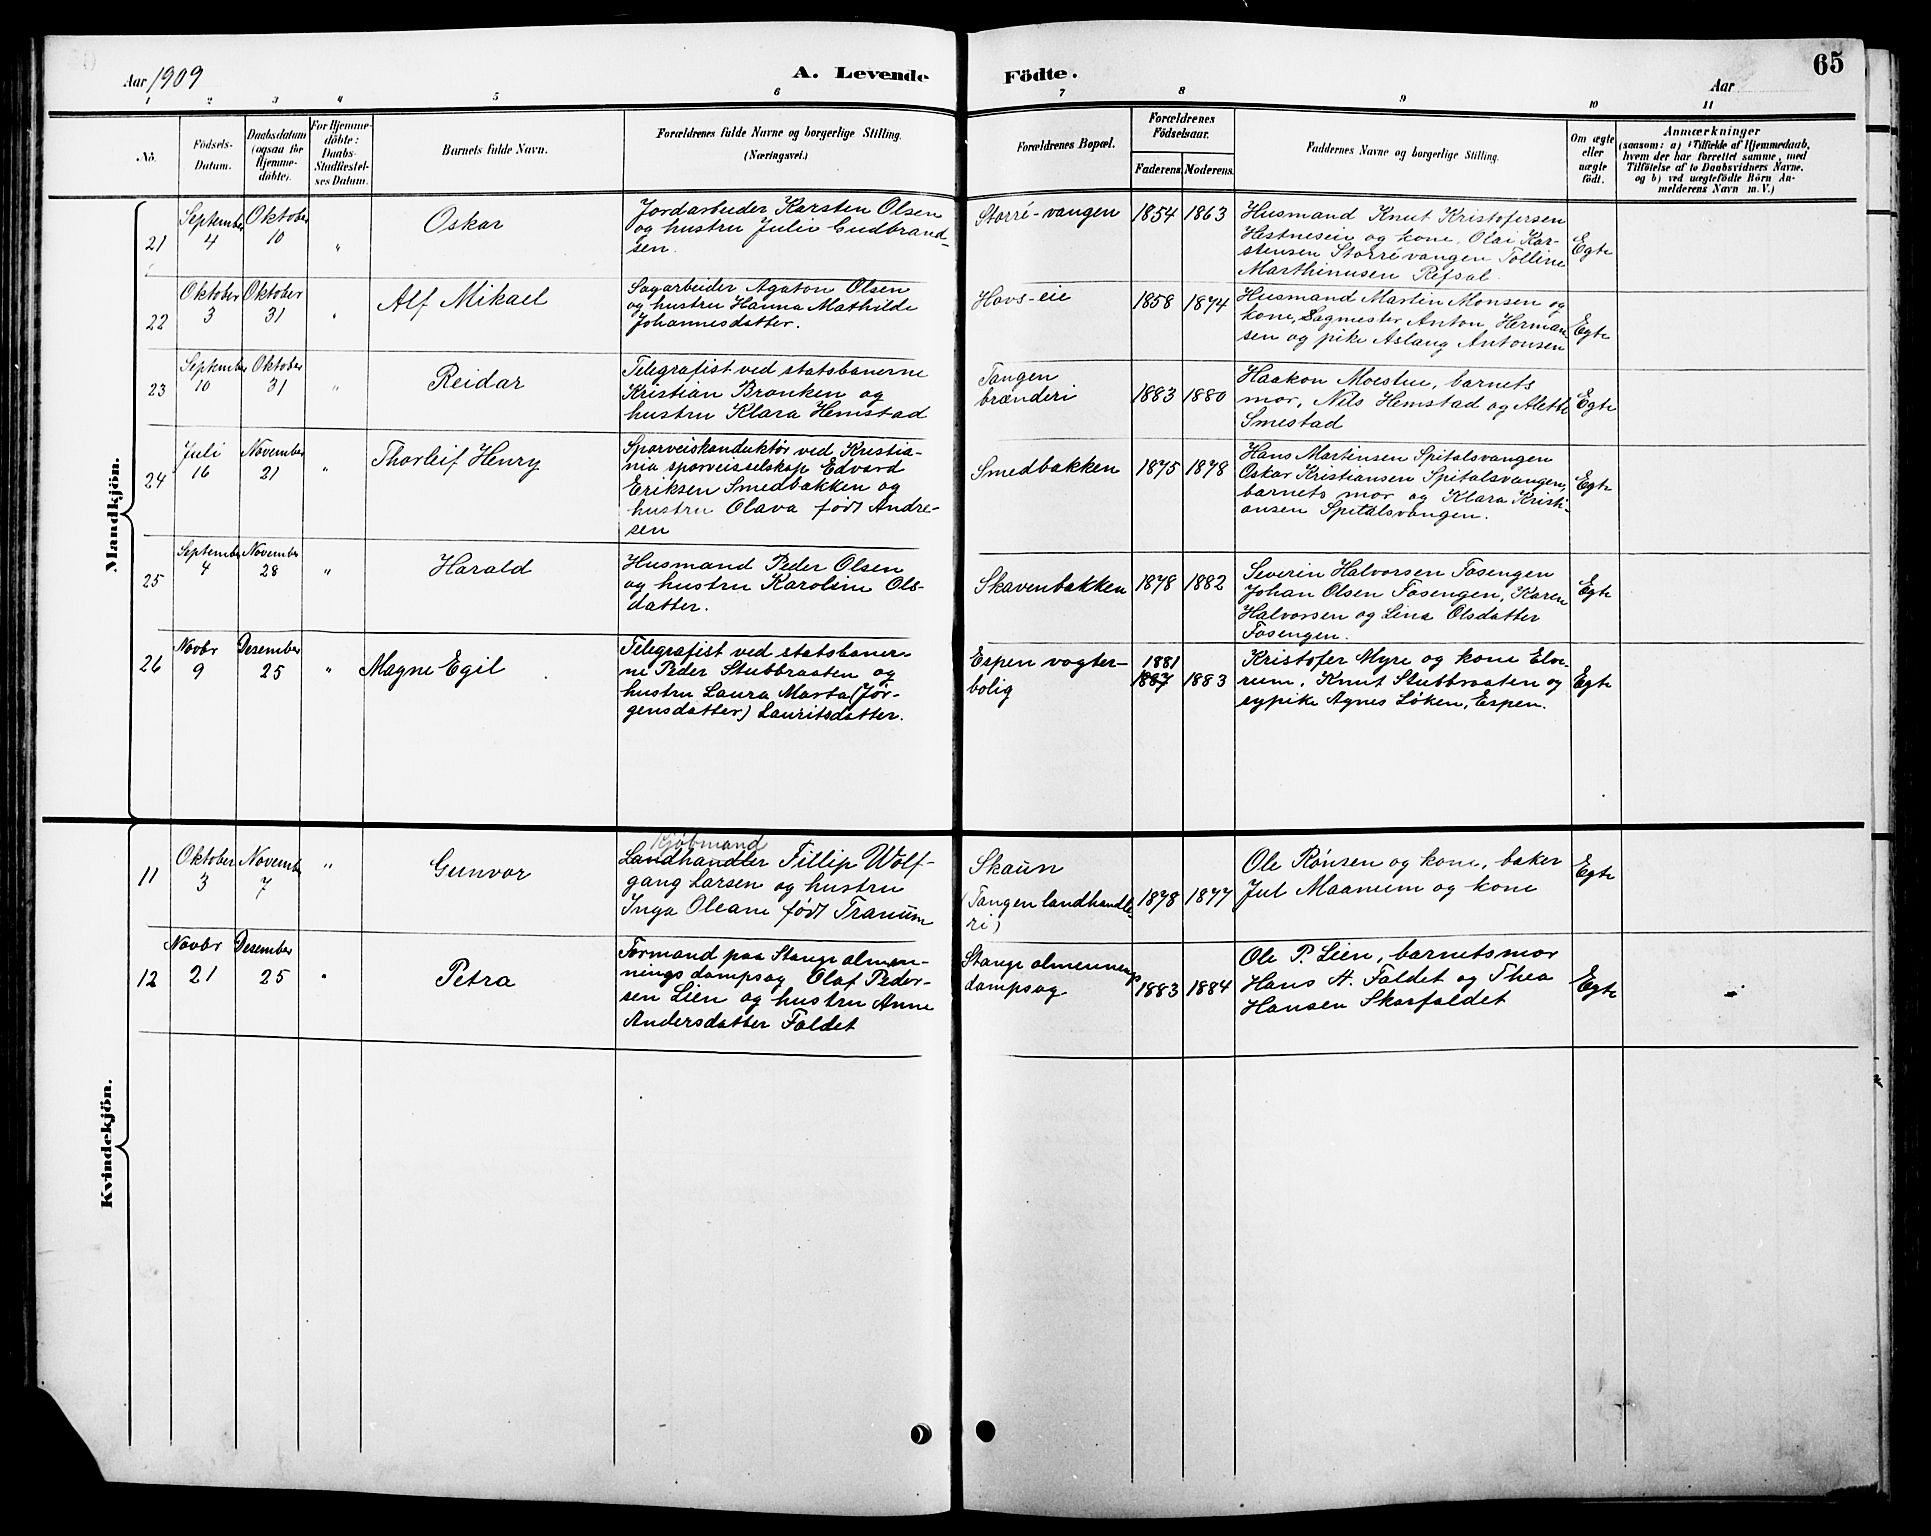 Aar 1909
A. Levende Födte.
Aar
65
1 2 3 4 5 6 7 8 9 10 11
No.
Födsels-
Datum.
Daabsdatum
(ogsaa for
Hjemme-
döbte).
For Hjemme-
döbte:
Daabs-
Stadfæstel-
ses Datum.
Barnets fulde Navn.
Forældrenes fulde Navne og borgerlige Stilling.
(Næringsvei.)
Forældrenes Bopæl.
Forældrenes
Födselsaar.
Faderens.
Moderens.
Faddernes Navne og borgerlige Stilling.
Om ægte
eller
uægte
födt.
Anmærkninger
(saasom: a) i Tilfælde af Hjemmedaab,
hvem der har forrettet samme, med
Tilföielse af to Daabsvidners Navne.
og b) ved uægtefödte Börn An-
melderens Navn m. V.)
Mandkjön.
21
September
4
Oktober
10
"
Oskar
Jordarbeider Karsten Olsen
og hustru Julie Gudbrand-
sen.
Storré-vangen
1854
1863
Husmand Knut Kristofersen
Hestneseie og kone, Olai Kar-
stensen Storrévangen Tolline
Marthinusen Refsal.
Egte
22
Oktober
3
Oktober
31
"
Alf Mikael
Sagarbeider Agaton Olsen
og hustru Hanna Mathilde
Johannesdatter.
Hovs-eie
1858
1874
Husmand Martin Monsen og
kone, Sagmester Anton Herman-
sen og pike Aslaug Antonsen
Egte
23
September
10
Oktober
31
"
Reidar
Telegrafist ved statsbanerne
Kristian Bronken og
hustru Klara Hemstad
Tangen
brænderi
1883
1880
Haakon Moestue, barnets
mor, Nils Hemstad og Alette
Smestad
Egte
24
Juli
16
November
21
"
Thorleif Henry
Sporveiskonduktør ved Kristia-
nia sporveisselskap Edvard
Eriksen Smedbakken og
hustru Olava født Andre-
sen
Smedbakken
1875
1878
Hans Martinsen Spitalsvangen
Oskar Kristiansen Spitalsvangen,
barnets mor og Klara Kristi-
ansen Spitalsvangen.
Egte
25
September
4
November
28
"
Harald
Husmand Peder Olsen
og hustru Karoline Ols-
datter.
Skavenbakken
1878
1882
Severin Halvorsen Fosengen
Johan Olsen Fosengen, Karen
Halvorsen og Lina Olsdatter
Fosengen.
Egte
26
Novbr
9
Desember
25
"
Magne Egil
Telegrafist ved statsbaner-
ne Peder Stubbraaten og
hustru Laura Marta (Jør-
gensdatter) Lauritsdatter.
Espen vogter-
bolig
1881
1887
1883
Kristofer Myre og kone Elve-
rum, Knut Stubbraaten og
sypike Agnes Løken, Espen.
Egte
Kvindekjön.
11
Oktober
3
November
7
"
Gunvor
Kjøbmand
Landhandler Fillip Wolf-
gang Larsen og hustru
Inga Oleane født Tranum
Skaun
(Tangen landhandle-
ri)
1878
1877
Ole Rønsen og kone, baker
Jul Maanum og kone
Egte
12
Novbr
21
Desember
25
"
Petra
Formand paa Stange almen-
nings dampsag Olaf Peder-
sen Lien og hustru Anne
Andersdatter Faldet
Stange almennings
dampsag
1883
1884
Ole P. Lien, barnets mor
Hans A. Faldet og Thea
Hansen Skarfaldet
Egte